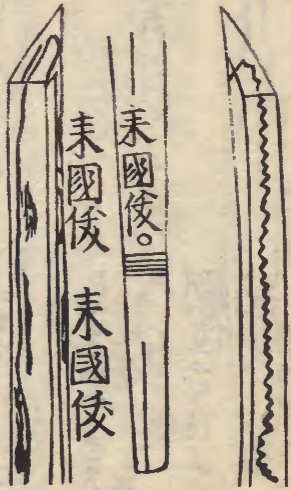 来國俊
来國俊
来國俊